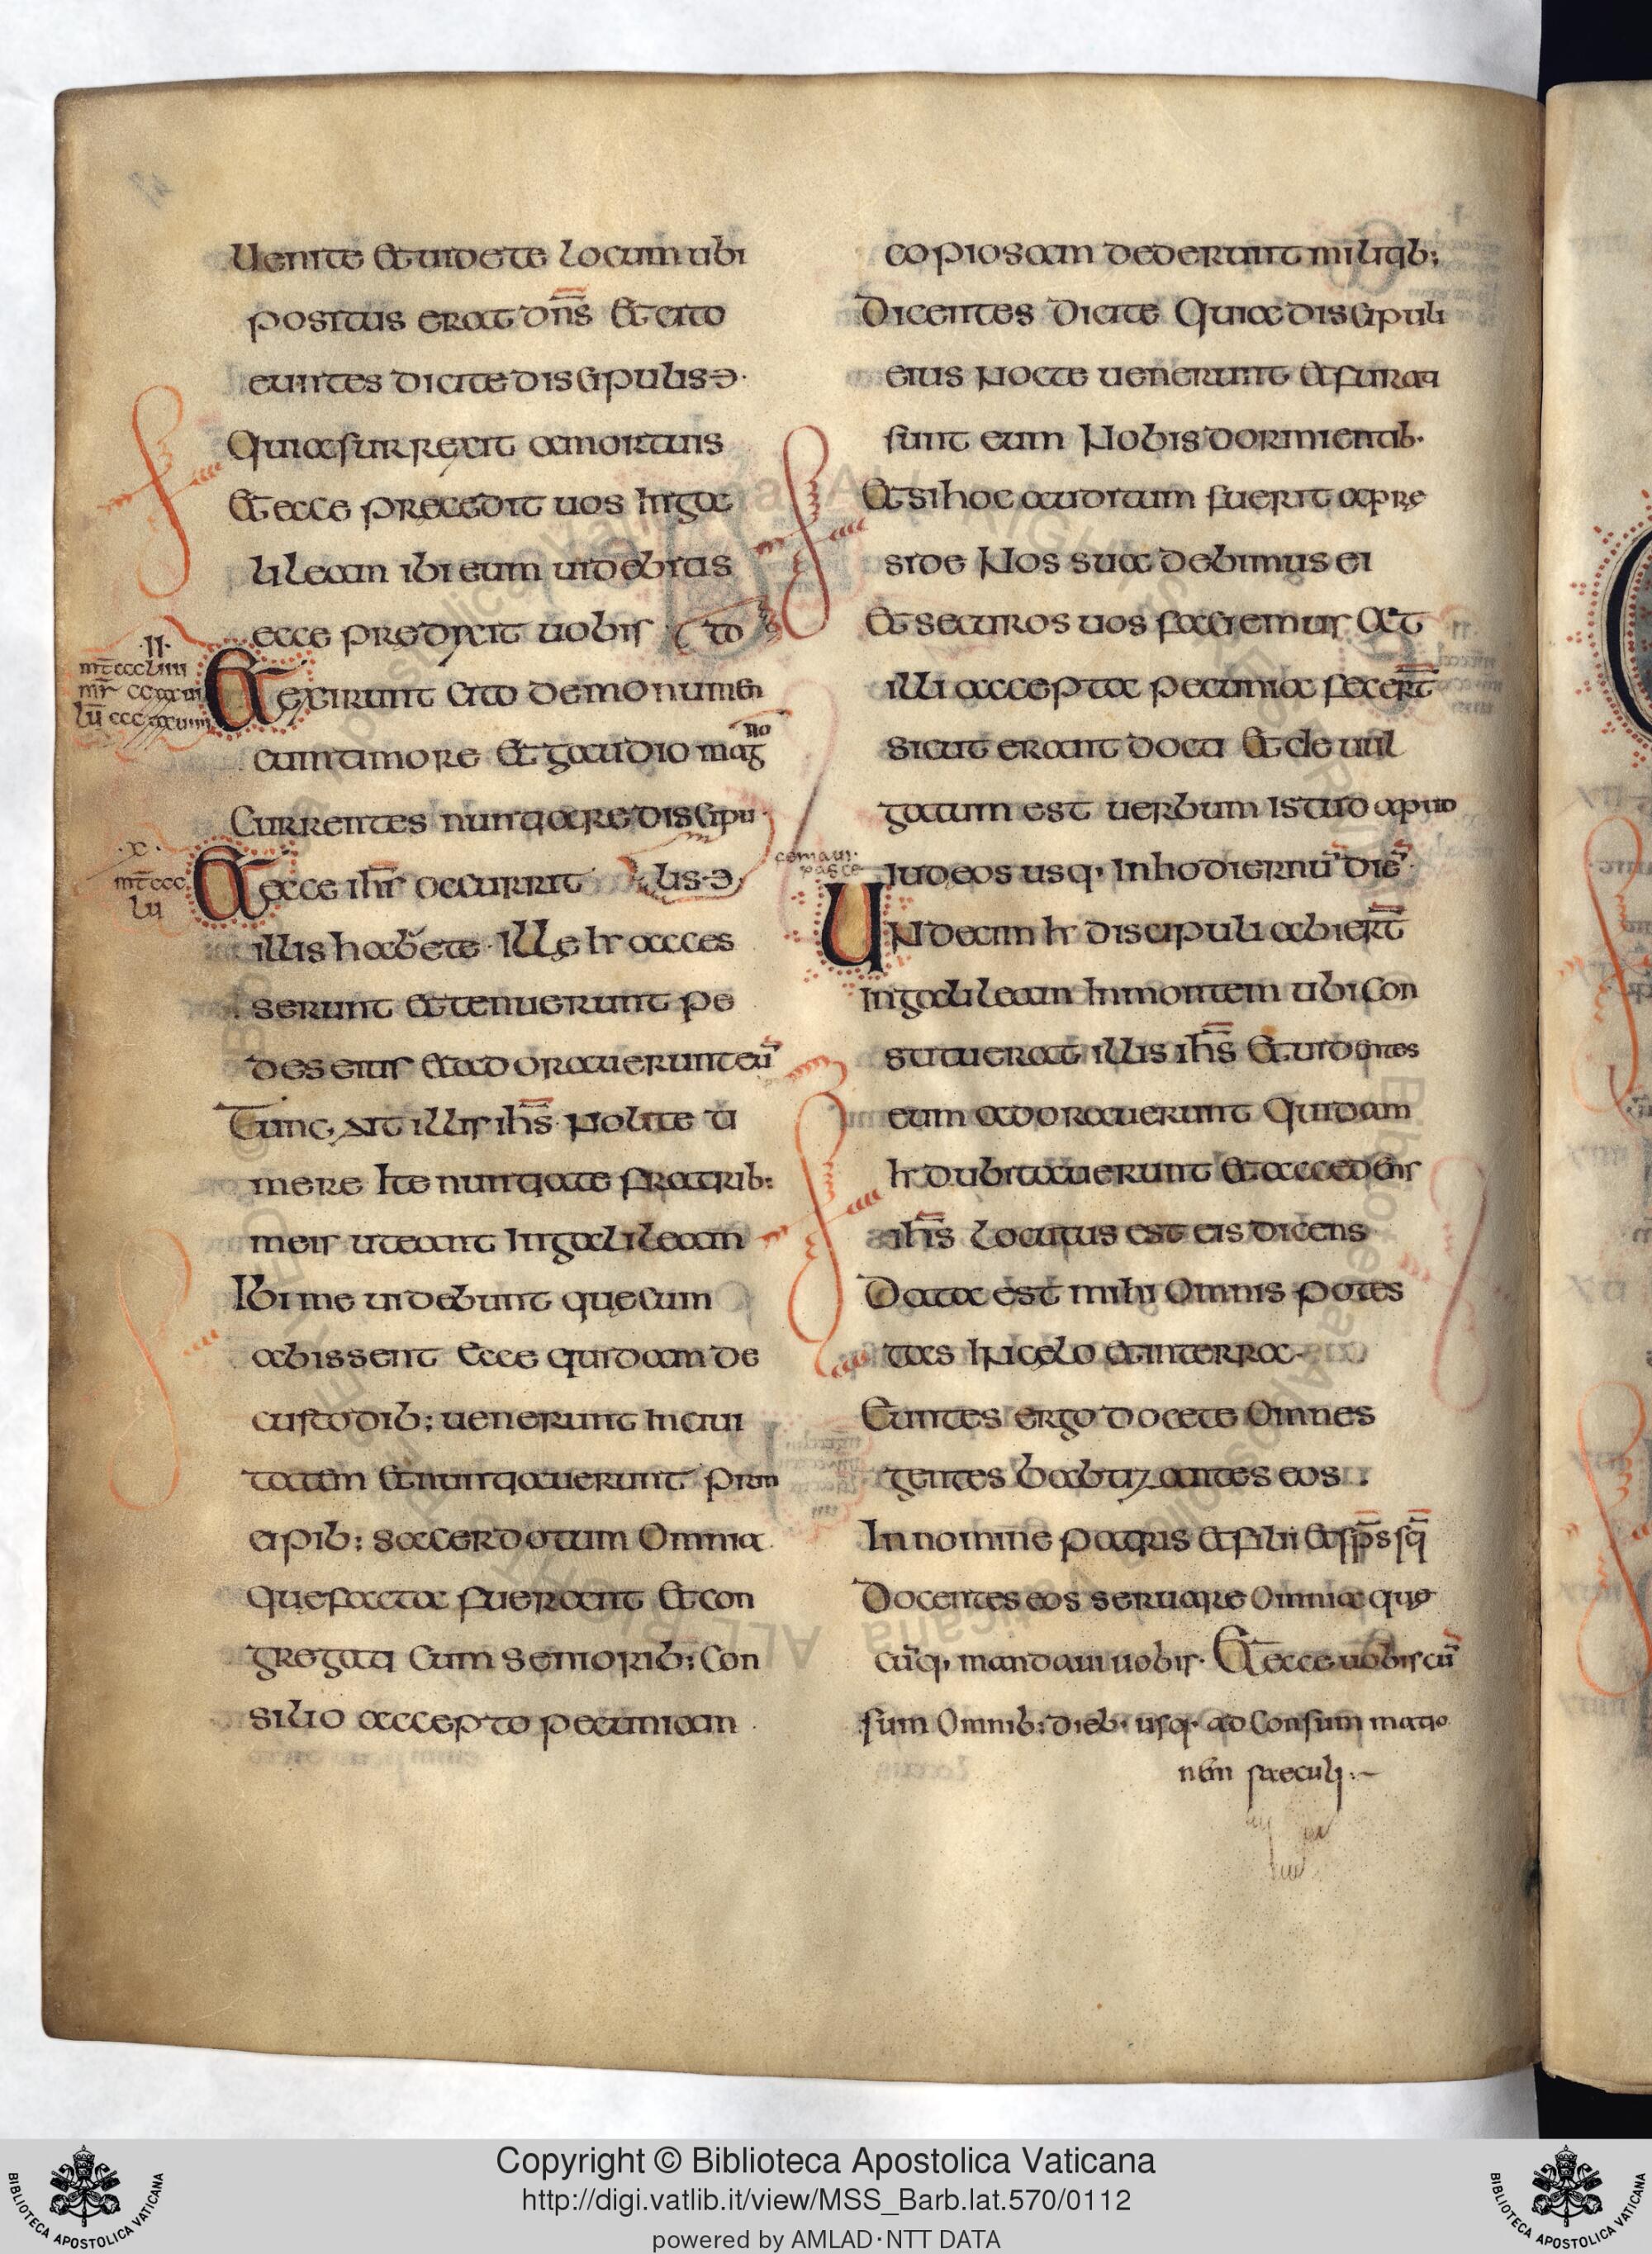 Uenite et uidete locum ubi
positus erat dn̄s Et cito
euntes dicite discipulis ɔ·
Quia surrexit a mortuis
Et ecce precedit uos In ga
lileam ibi eum uidebitis
ecce predixit uobis
to
·II·
mt̄ ccc liiii
Et exirunt cito de monumen
cum timore et gaudio mag
no
Currentes nuntiare discipu
lis·ɔ
·x·
mt̄ ccc
lu
Et ecce ihs̄ occurrit
illis habete· Ille hr acces
serunt et tenuerunt pe
des eius et adorauerunt eū
Tunc ait illis ihs̄ Nolite ti
mere Ite nuntiate fratrib:
meis ut eant In galileam
Ibi me uidebunt que cum
abissent Ecce quidam de
custodib; uenerunt In ciui
tatem et nuntiauerunt prin
cipib; sacerdotum Omnia
que facta fuerant Et con
gregati Cum Seniorib; Con
silio accepto pecuniam
copiosam dederunt militib;
Dicentes Dicite Quia discipuli
eius Nocte uenerunt et furati
sunt eum Nobis dormientib·
Et si hoc auditum fuerit a pre
side Nos suadebimus ei
Et securos uos faciemus At
illi accepta pecunia fecer̄t
sicut erant docti Et deuul
gatum est uerbum Istud apud
Iudeos usq, In hodiernū diē·
Undecim hr discipuli abier̄t
In galileam In montem ubi Con
stituerat illis ihs̄ Et uidentes
eum adorauerunt Quidam
hr dubitauerunt Et accedens
ihs̄ Locutus est eis dicens
Data est mihi Omnis potes
tas In celo et in terra·
Euntes ergo docete Omnes
gentes babtizantes eos :
In nomine patris et filii et sp̄s sc̄i
Docentes eos seruare Omnia que
cūq, mandaui uobis· Et ecce uobiscū
sum Omnib; dieb; usq· ad Consummatio
nem saeculi:~
Copyright © Biblioteca Apostolica Vaticana
http://digi.vatlib.it/view/MSS_Barb.lat.570/0112
powered by AMLAD·NTT DATA
BIBLIOTECA APOSTOLICA VATICANA
BIBLIOTECA APOSTOLICA VATICANA